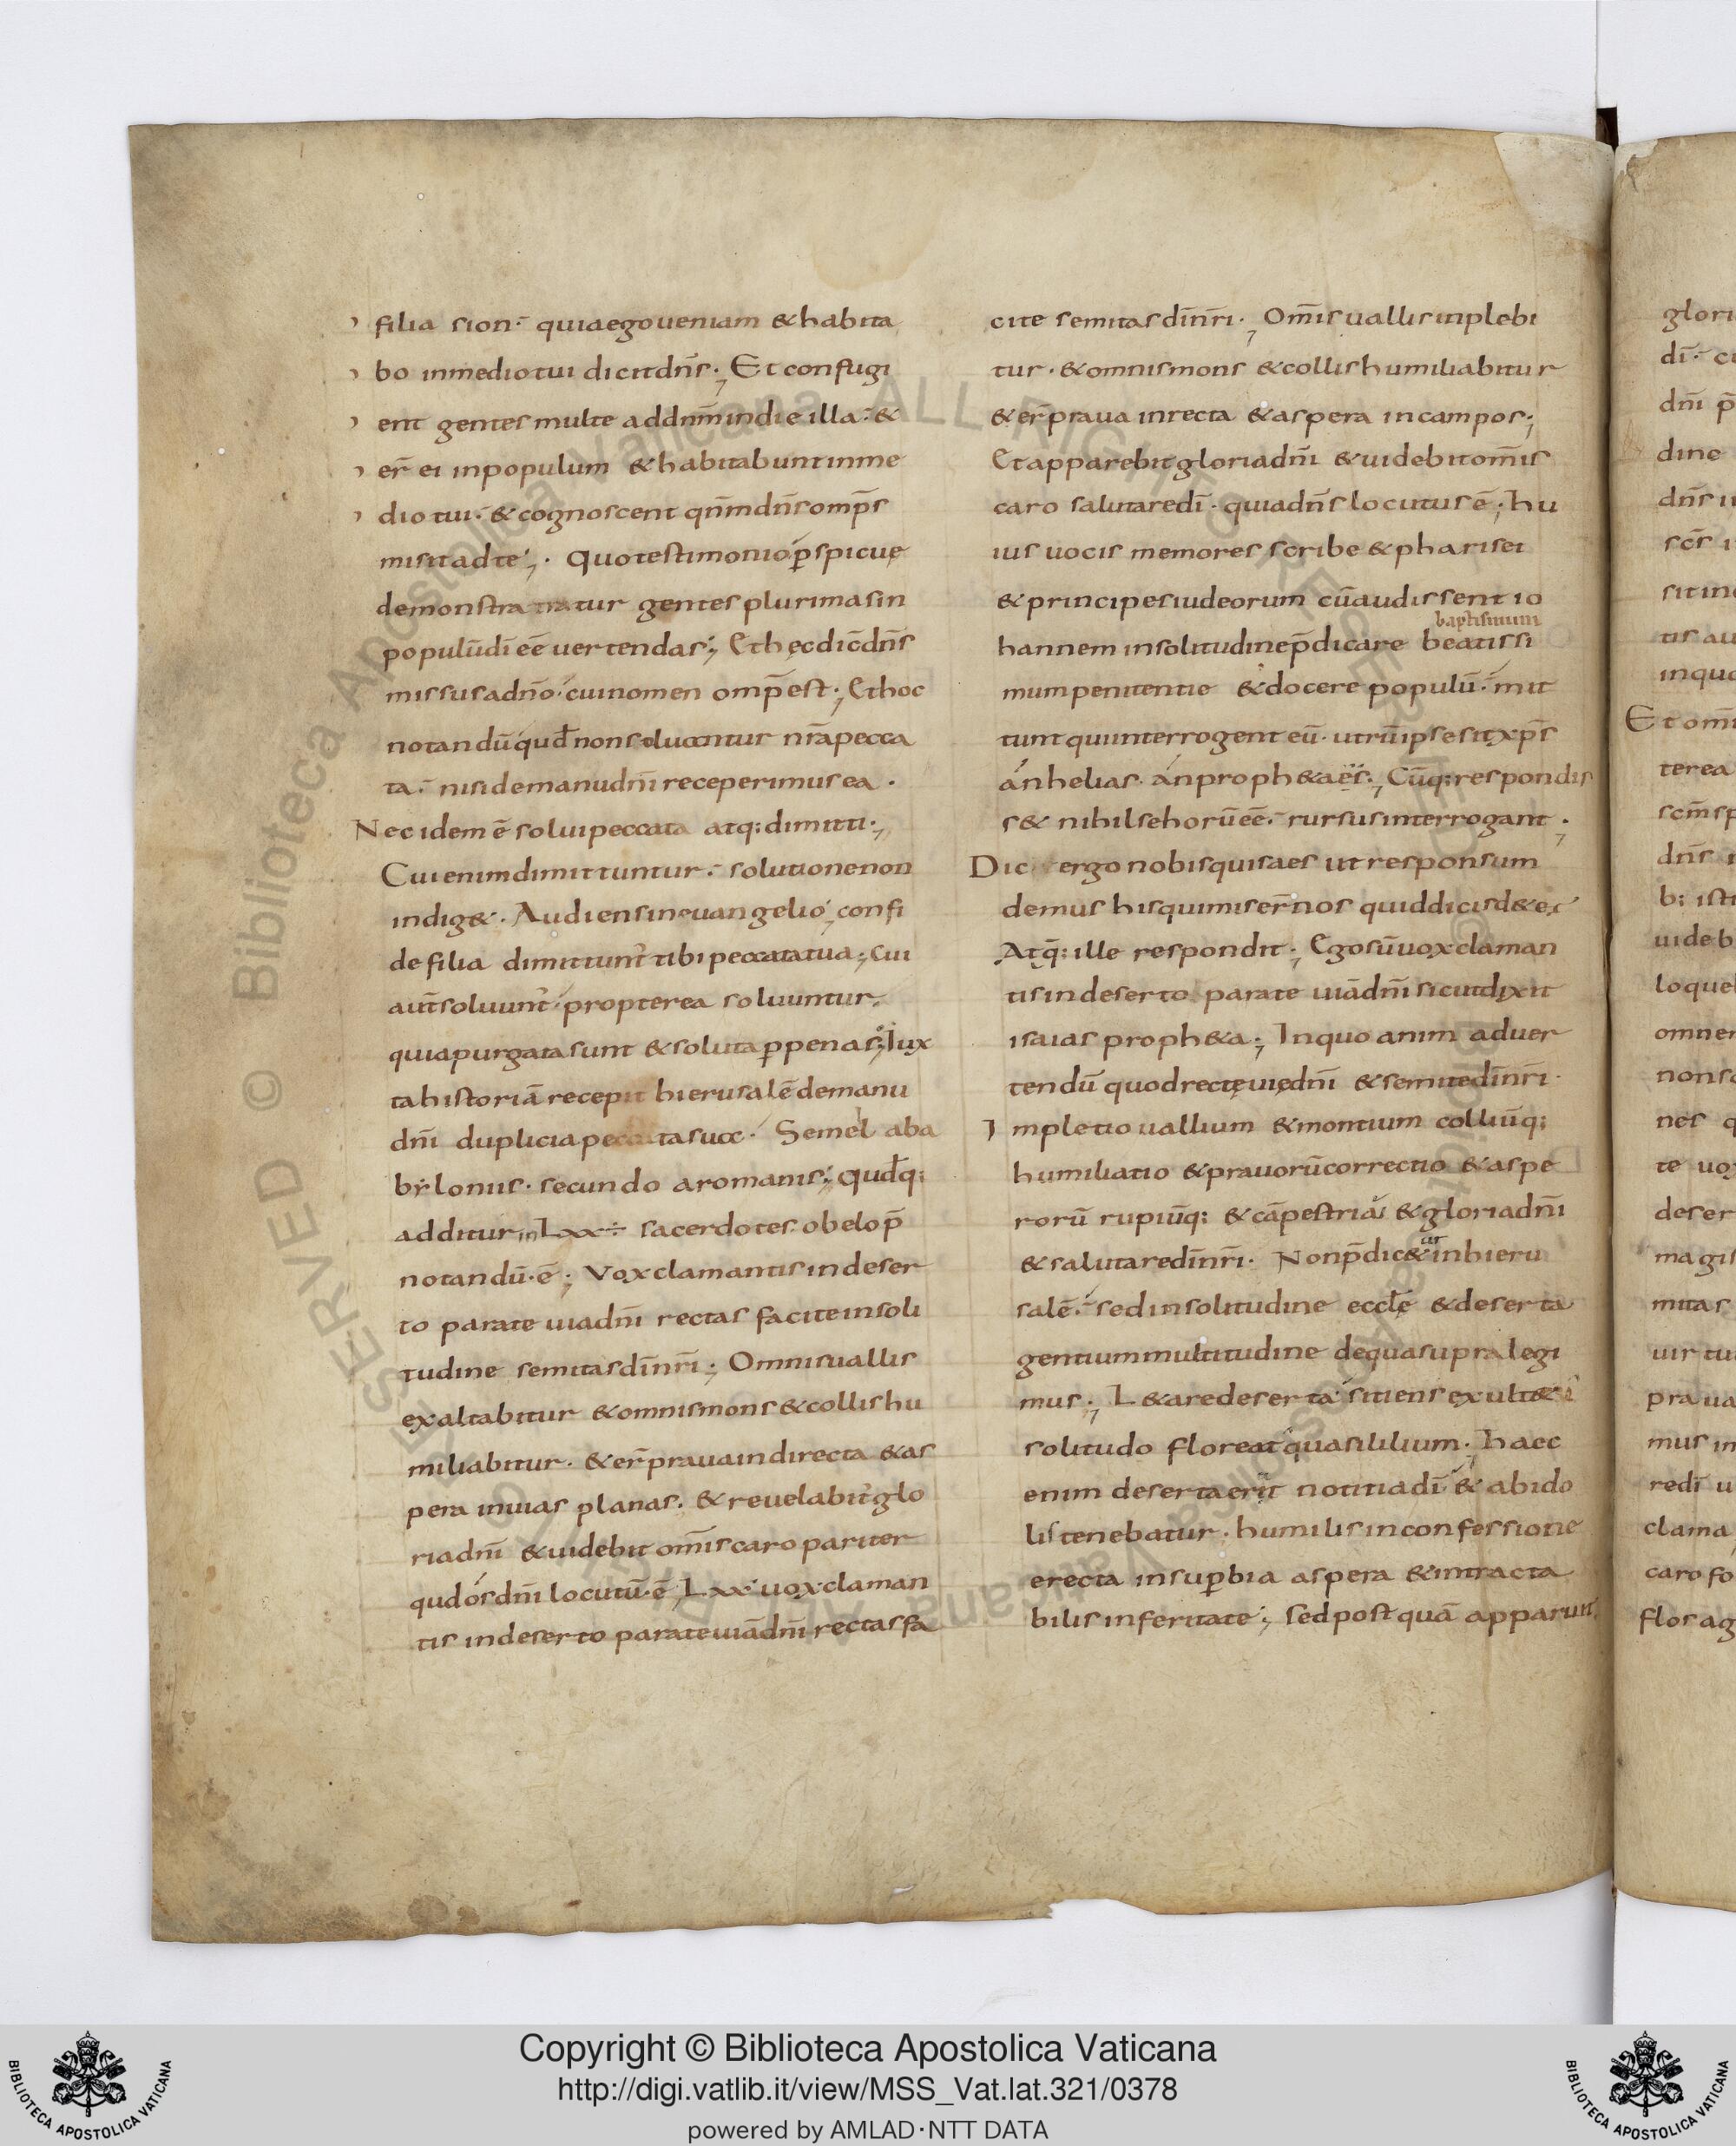 filia sion·́ quia ego ueniam & habita
bo in medio tui dicit dn̄s·, Et confugi
ent gentes multe ad dn̄m in die illa·́ &
er̄ ei in populum & habitabunt in me
dio tui·́ & cognoscent qn̄m dn̄s omp̄s
misit ad te·, · Quo testimonio p̱spicuę
demonstra tur gentes plurimas in
populū dī eē uertendas·, Et hęc dic̄ dn̄s
missus a dn̄o·́ cui nomen omp̄ est·, Et hoc
notandū qud̄ non soluontur nr̄a pecca
ta·́ nisi de manu dn̄i receperimus ea ·
Nec idem ē solui peccata atq: dimitti·,
Cui enim dimittuntur·́ solutione non
indig&·́ Audiens in euangelio·, confi
de filia dimittunt̉ tibi peccata tua·, Cui
aut̄ soluunt̉·́ propterea soluuntur·,
quia purgata sunt & soluta p̱ penas·, Iux
ta historiā recepit hierusalē de manu
dn̄i duplicia peccata sua·́ Semel a ba
byloniis· secundo a romanis·, qud̄q:
additur in Lxx÷ sacerdotes· obelo p̄
notandū·ē·, Vox clamantis in deser
to parate uia dn̄i rectas facite in soli
tudine semitas dīnr̄i·, Omnis uallis
exaltabitur & omnis mons & collis hu
miliabitur· & er̄ praua in directa & as
pera in uias planas· & reuelabit̉ glo
ria dn̄i & uidebit om̄is caro pariter
qud̄ ós dn̄i locutū·ē, Lxx·́ uox claman
tis in deserto parate uiā dn̄i rectas fa
cite semitas dīnr̄i·, Om̄is uallis inplebi
tur· & omnis mons & collis humiliabitur
& er̄ praua in recta & aspera in campos·,
Et apparebit gloria dn̄i & uidebit om̄is
caro salutare dī· quia dn̄s locutus ē·, hu
ius uocis memores scribe & pharisei
& principes iudeorum cū audissent io
baptismum
hannem in solitudine p̄dicare beatissi
mum penitentie & docere populū·́ mit
tunt qui interrogent eū· utrū ipse sit xp̄s
án helias· án proph&a ēs·, Cūq: respondis
s& nihil se horū eē·́ rursus interrogant·,
Dic ergo nobis quis aes ut responsum
demus his qui miser̄ nos quid dicis de te·
Atq̄: ille respondit·, Ego sū uox claman
tis in deserto parate uiā dn̄i sicut dixit
isaias proph&a·, In quo anim aduer
tendū quod rectę uię dn̄i & semite dīnr̄i·
Impletio uallium & montium colliūq:
humiliatio & prauorū correctio & aspe
rorū rupiūq: & cāpestria & gloria dn̄i
& salutare dīnr̄i· Non p̄dic&ur in hieru
salē·́ sed in solitudine eccłę & deserta
gentium multitudine de qua supra legi
mus·, L&are deserta sitiens exult&
solitudo floreat quasi lilium·, haec
enim deserta erat notitia dī & ab ido
lis tenebatur· humilis in confessione
erecta in sup̱bia aspera & intracta
bilis in feritate·, sed post quā apparuit
glori
dī·́ c
dn̄i p̄
dine
dn̄s i
scs̄ i
sit in
tis au
inqu
Et om̄
terea
scm̄ sp
dn̄s
b: isti
uideb
loque
omne
non s
nes q
te uo
deser
magis
mitas
uirtu
praua
mus in
re dī u
clama
caro fo
flos ag
© Biblioteca Apostolica Vaticana ALL RIGHTS RESERVED
Copyright © Biblioteca Apostolica Vaticana
http://digi.vatlib.it/view/MSS_Vat.lat.321/0378
powered by AMLAD·NTT DATA
BIBLIOTECA APOSTOLICA VATICANA
BIBLIOTECA APOSTOLICA VATICANA